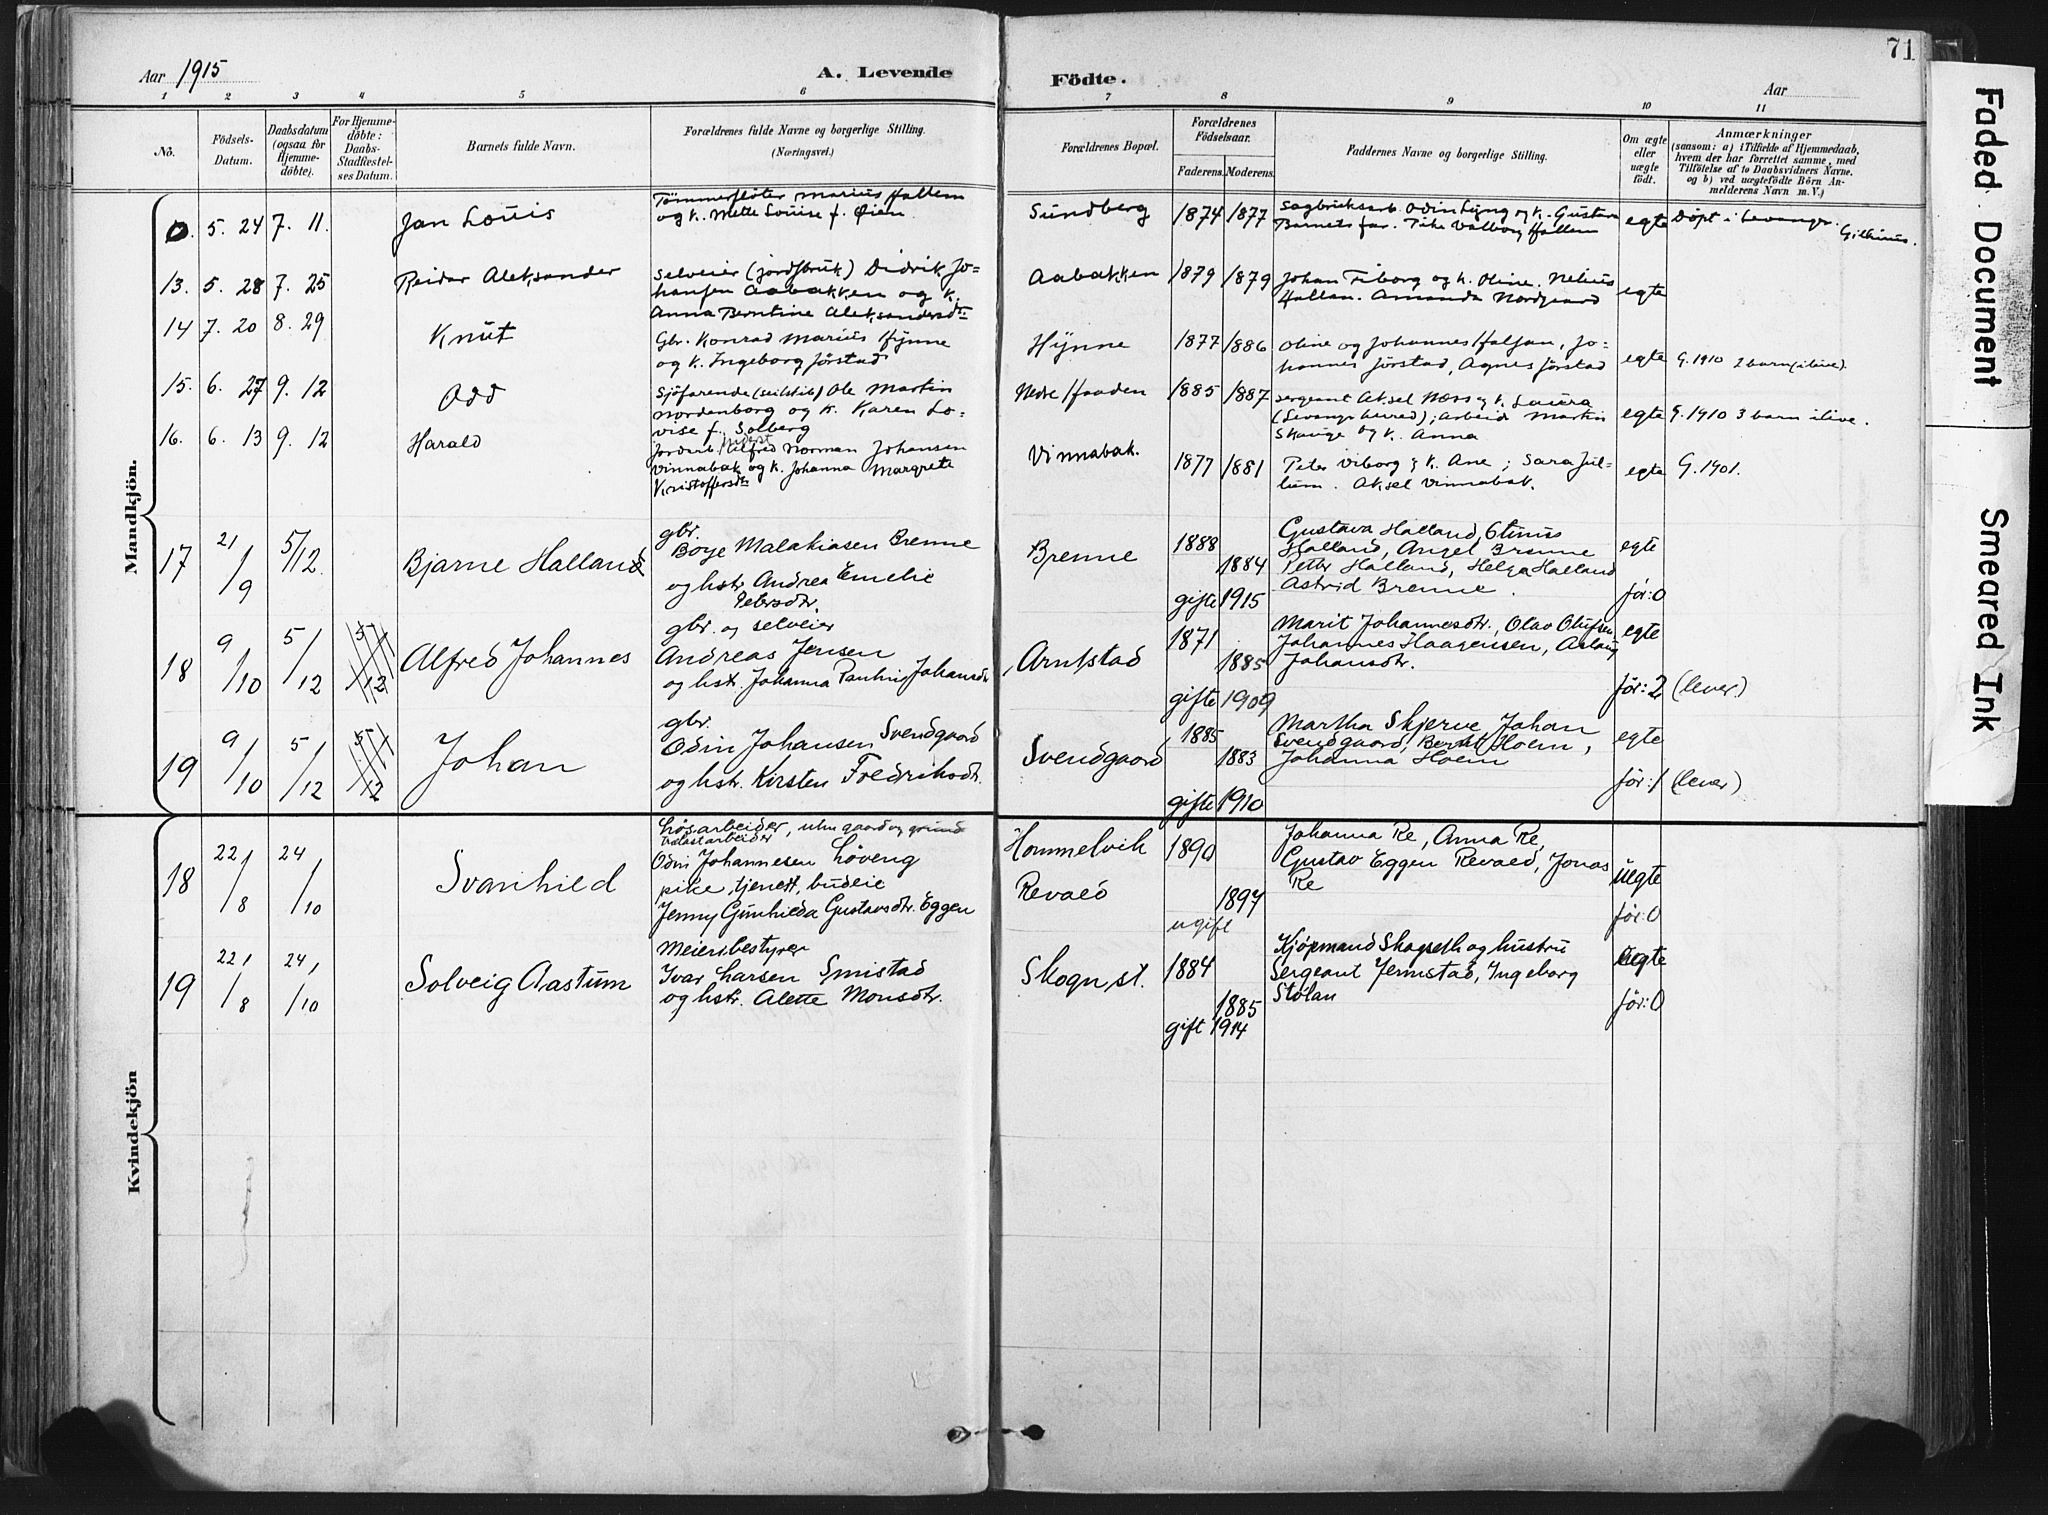 Aar 1915
A. Levende
Fødte.
Aar
71
1 2 3 4 5 6 7 8 9 10 11
No.
Fødsels-
Datum.
Daabsdatum
(ogsaa for
Hjemme-
døbte).
For Hjemme-
døbte:
Daabs-
Stadfæstel-
ses Datum.
Barnets fulde Navn.
Forældrenes fulde Navne og borgerlige Stilling.
(Næringsvei.)
Forældrenes Bopæl.
Forældrenes
Fødselsaar.
Faderens. Moderens.
Faddernes Navne og borgerlige Stilling.
Om ægte
eller
uægte
født.
Anmærkninger
(saasom: a) i Tilfælde af Hjemmedaab,
hvem der har forrettet samme, med
Tilføielse af to Daabsvidners Navne.
og b) ved uægtefødte Børn An-
melderens Navn m. V.)
Mandkjön.
5. 24 7. 11.
Jan Louis
Tømmerfløter Marius Hallem
og k. Mette Louise f. Øien
Sundberg
1874 1877
Sagbruksarb. Odin Lyng og k. Gustava
Barnets far. Valborg Hallem
egte
Døpt i Levanger.
13. 5. 28 7. 25
Reidar Aleksander
Selveier (jordbruk) Didrik Jo-
hansen Aabakken og k.
Anna Berntine Aleksandersdtr
Aabakken
1879 1879
Johan Fiborg og k. Oline. Nelius
Hallan. Amanda Nordgaard
egte
14 7. 20 8. 29
Knut
Gbr. Konrad Marius Hynne
og k. Ingeborg Jørstad
Hynne
1877 1886
Oline og Johannes Halsan, Jo-
hannes Jørstad, Agnes Jørstad
egte
G. 1910 2 barn (ilive).
15. 6. 27 9. 12
Odd
Sjöfarende (seilskib) Ole Martin
Nordenborg og k. Karen Lo-
vise f. Solberg
Nedre Haaden
1885 1887
Sergeant Aksel Næss og k. Laura
(Levanger herred); Arbeid. Martin
Skauge og k. Anna
egte
G. 1910 3 barn ilive.
16. 6. 13 9. 12
Harald
Jordarb. Alfred Norman Johansen
Vinnabak og k. Johanna Margrete
Kristoffersdtr
Vinnabak.
1877 1881
Peter Viborg og k. Ane; Sara Jul-
lum. Aksel Vinnabak.
egte
G. 1901.
17 21/9 5/12.
Bjarne Halland
gbr.
Boye Malakiasen Brenne
og hstr. Andrea Emelie
Petersdtr.
Brenne
1888
1884
gifte 1915
Gustava Halland, Stinius
Halland, Angel Brenne
Petter Halland, Helga Halland
Astrid Brenne.
egte
før: 0
18 9/10 5/12 5/12
Alfred Johannes
gbr. og selveier
Andreas Jensen
og hstr. Johanna Pauline Johansdtr
Arntstad
1871
1885
gifte 1909
Marit Johannesdtr., Olav Olufsen,
Johannes Haagensen, Aslaug
Johansdtr.
egte
før: 2 (lever)
19 9/10 5/12 5/12
Johan
gbr.
Odin Johansen Svendgaard
og hstr. Kirsten Fredriksdtr.
Svendgaard
1885
1883
gifte 1910
Martha Skjerve, Johan
Svendgaard, Berntt Hoem,
Johanna Hoem
egte
før: 1 (lever)
Kvindekjön
18 22/8 24/10
Svanhild
Løsarbeider, uten gaard og grund
Odin Johannesen Løveng
pike, tjenest, budeie
Jenny Gunhilda Gustavsdtr. Eggen
Hommelvik
Revaed
1890
1897
ugift
Johanna Re, Anna Re,
Gustav Eggen Revaed, Jonas
Re
uegte
før: 0
19 22/8 24/10
Solveig Aastum
Meieribestyrer
Ivar Larsen Smistad
og hstr. Alette Monsdtr.
Skogn st.
1884
1885
gift 1914
Kjøpmand Skogseth og hustru
Sergeant Jennstad, Ingeborg
Stølan
egte
før: 0
Faded Document Smeared Ink